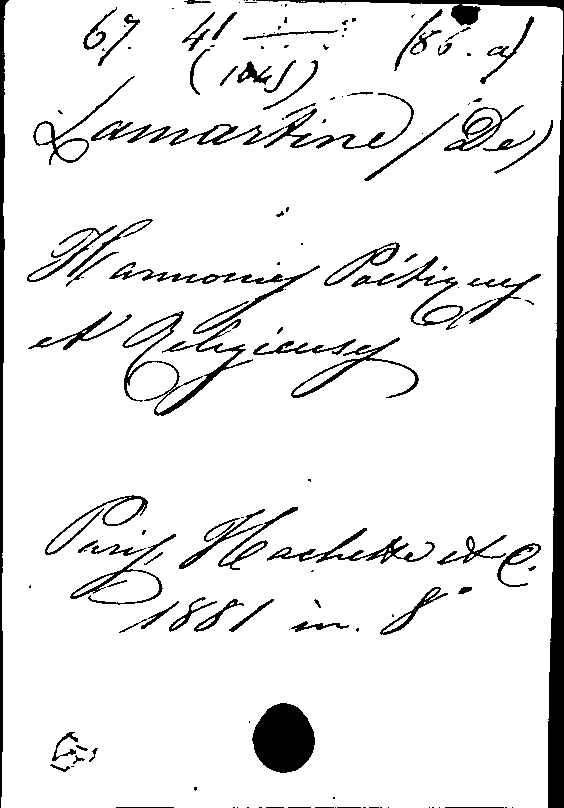 67. 41 (86. a)
(1045)
Lamartine (De)
Harmonies Poétiques
et Religieuses
Paris, Hachette et C.
1881 in. 8°